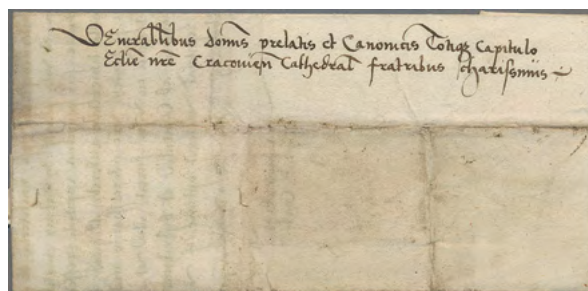 Venerabilibus domnis prelatis et Canonicis Totiqz Capitulo
Ecclie nre Cracovien Cathedral fratribus charissimis